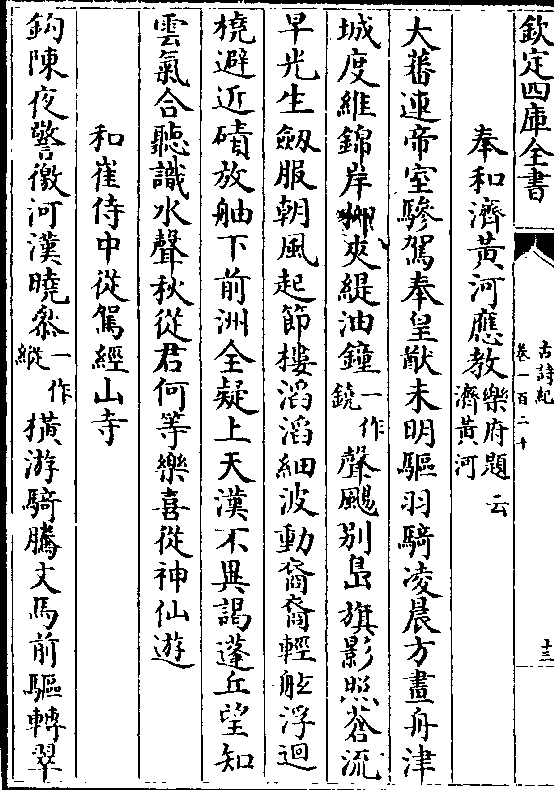 欽定四庫全書
古詩紀
卷一百二十
十三
奉和濟黃河應教樂府題云濟黃河
大蕃連帝室驂駕奉皇猷未明驅羽騎凌晨方畫舟津
城度維錦岸柳夾緹油鐘一作鐃聲颺别島旗影照蒼流
早光生劔服朝風起節樓滔滔細波動裔裔輕舷浮迴
橈避近磧放舳下前洲全疑上天漢不異謁蓬丘望知
雲氣合聽識水聲秋從君何等樂喜從神仙遊
和崔侍中從駕經山寺
鈎陳夜警徼河漢曉參一作縱橫游騎騰文馬前驅轉翠